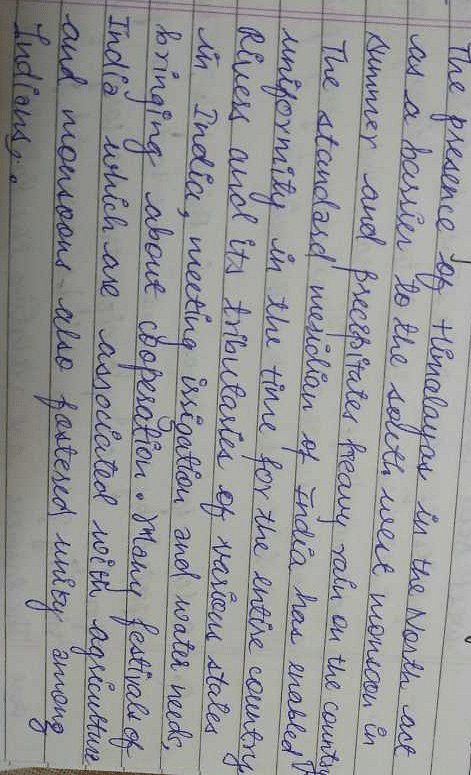 The presence of Himalayas in the North act
as a barrier to the south west monsoon in
summer and precipitates heavy rain on the country
The standard meridian of India has enabled
uniformity in the time for the entire country
Rivers and its tributaries of various states
in India, meeting irrigation and water needs,
bringing about cooperation. Many festivals of
India which are associated with agriculture
and monsoons also fostered unity among
Indians.